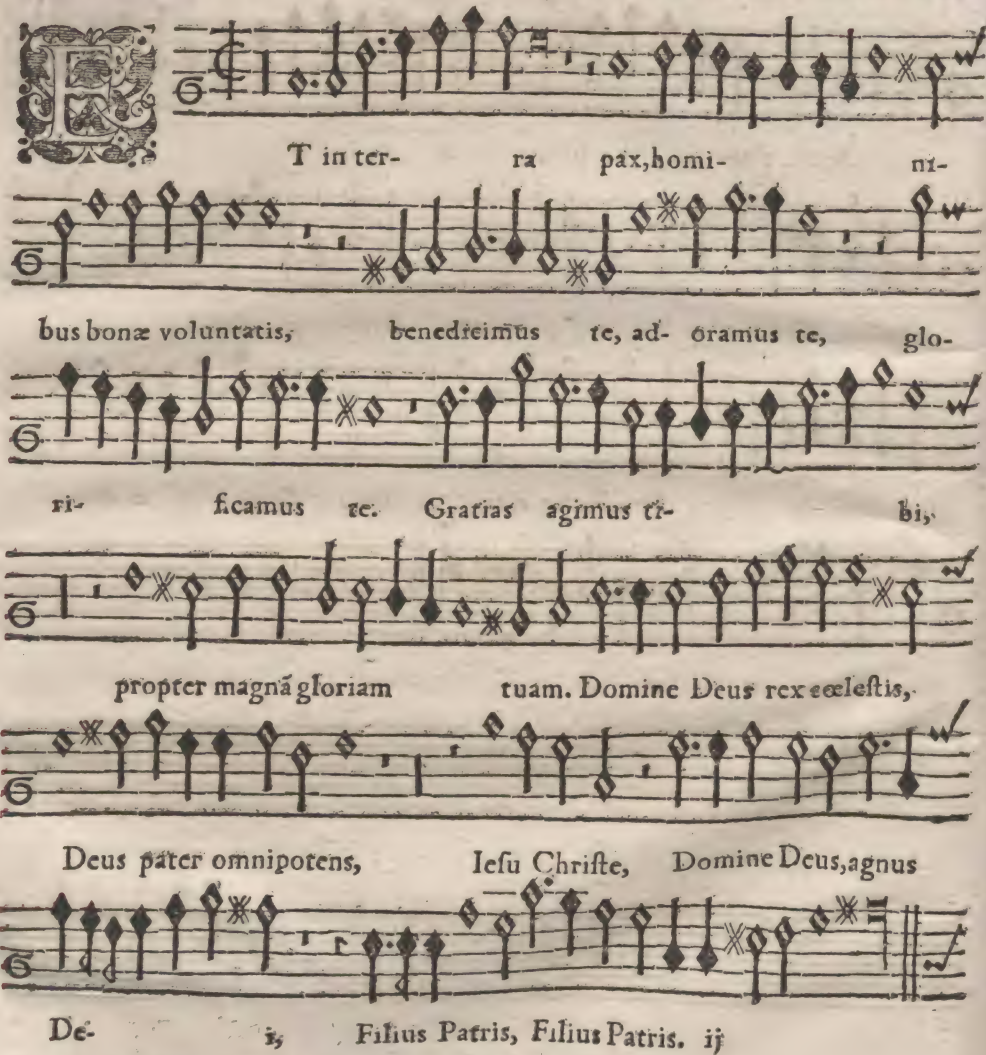 ET in ter- ra pax, homi- ni-
bus bonæ voluntatis, benedicimus te, ad- oramus te, glo-
ri- ficamus te. Gratias agimus ti- bi,
propter magnã gloriam tuam. Domine Deus rex cœleſtis,
Deus pater omnipotens, Ieſu Chriſte, Domine Deus, agnus
De- i, Filius Patris, Filius Patris. ij